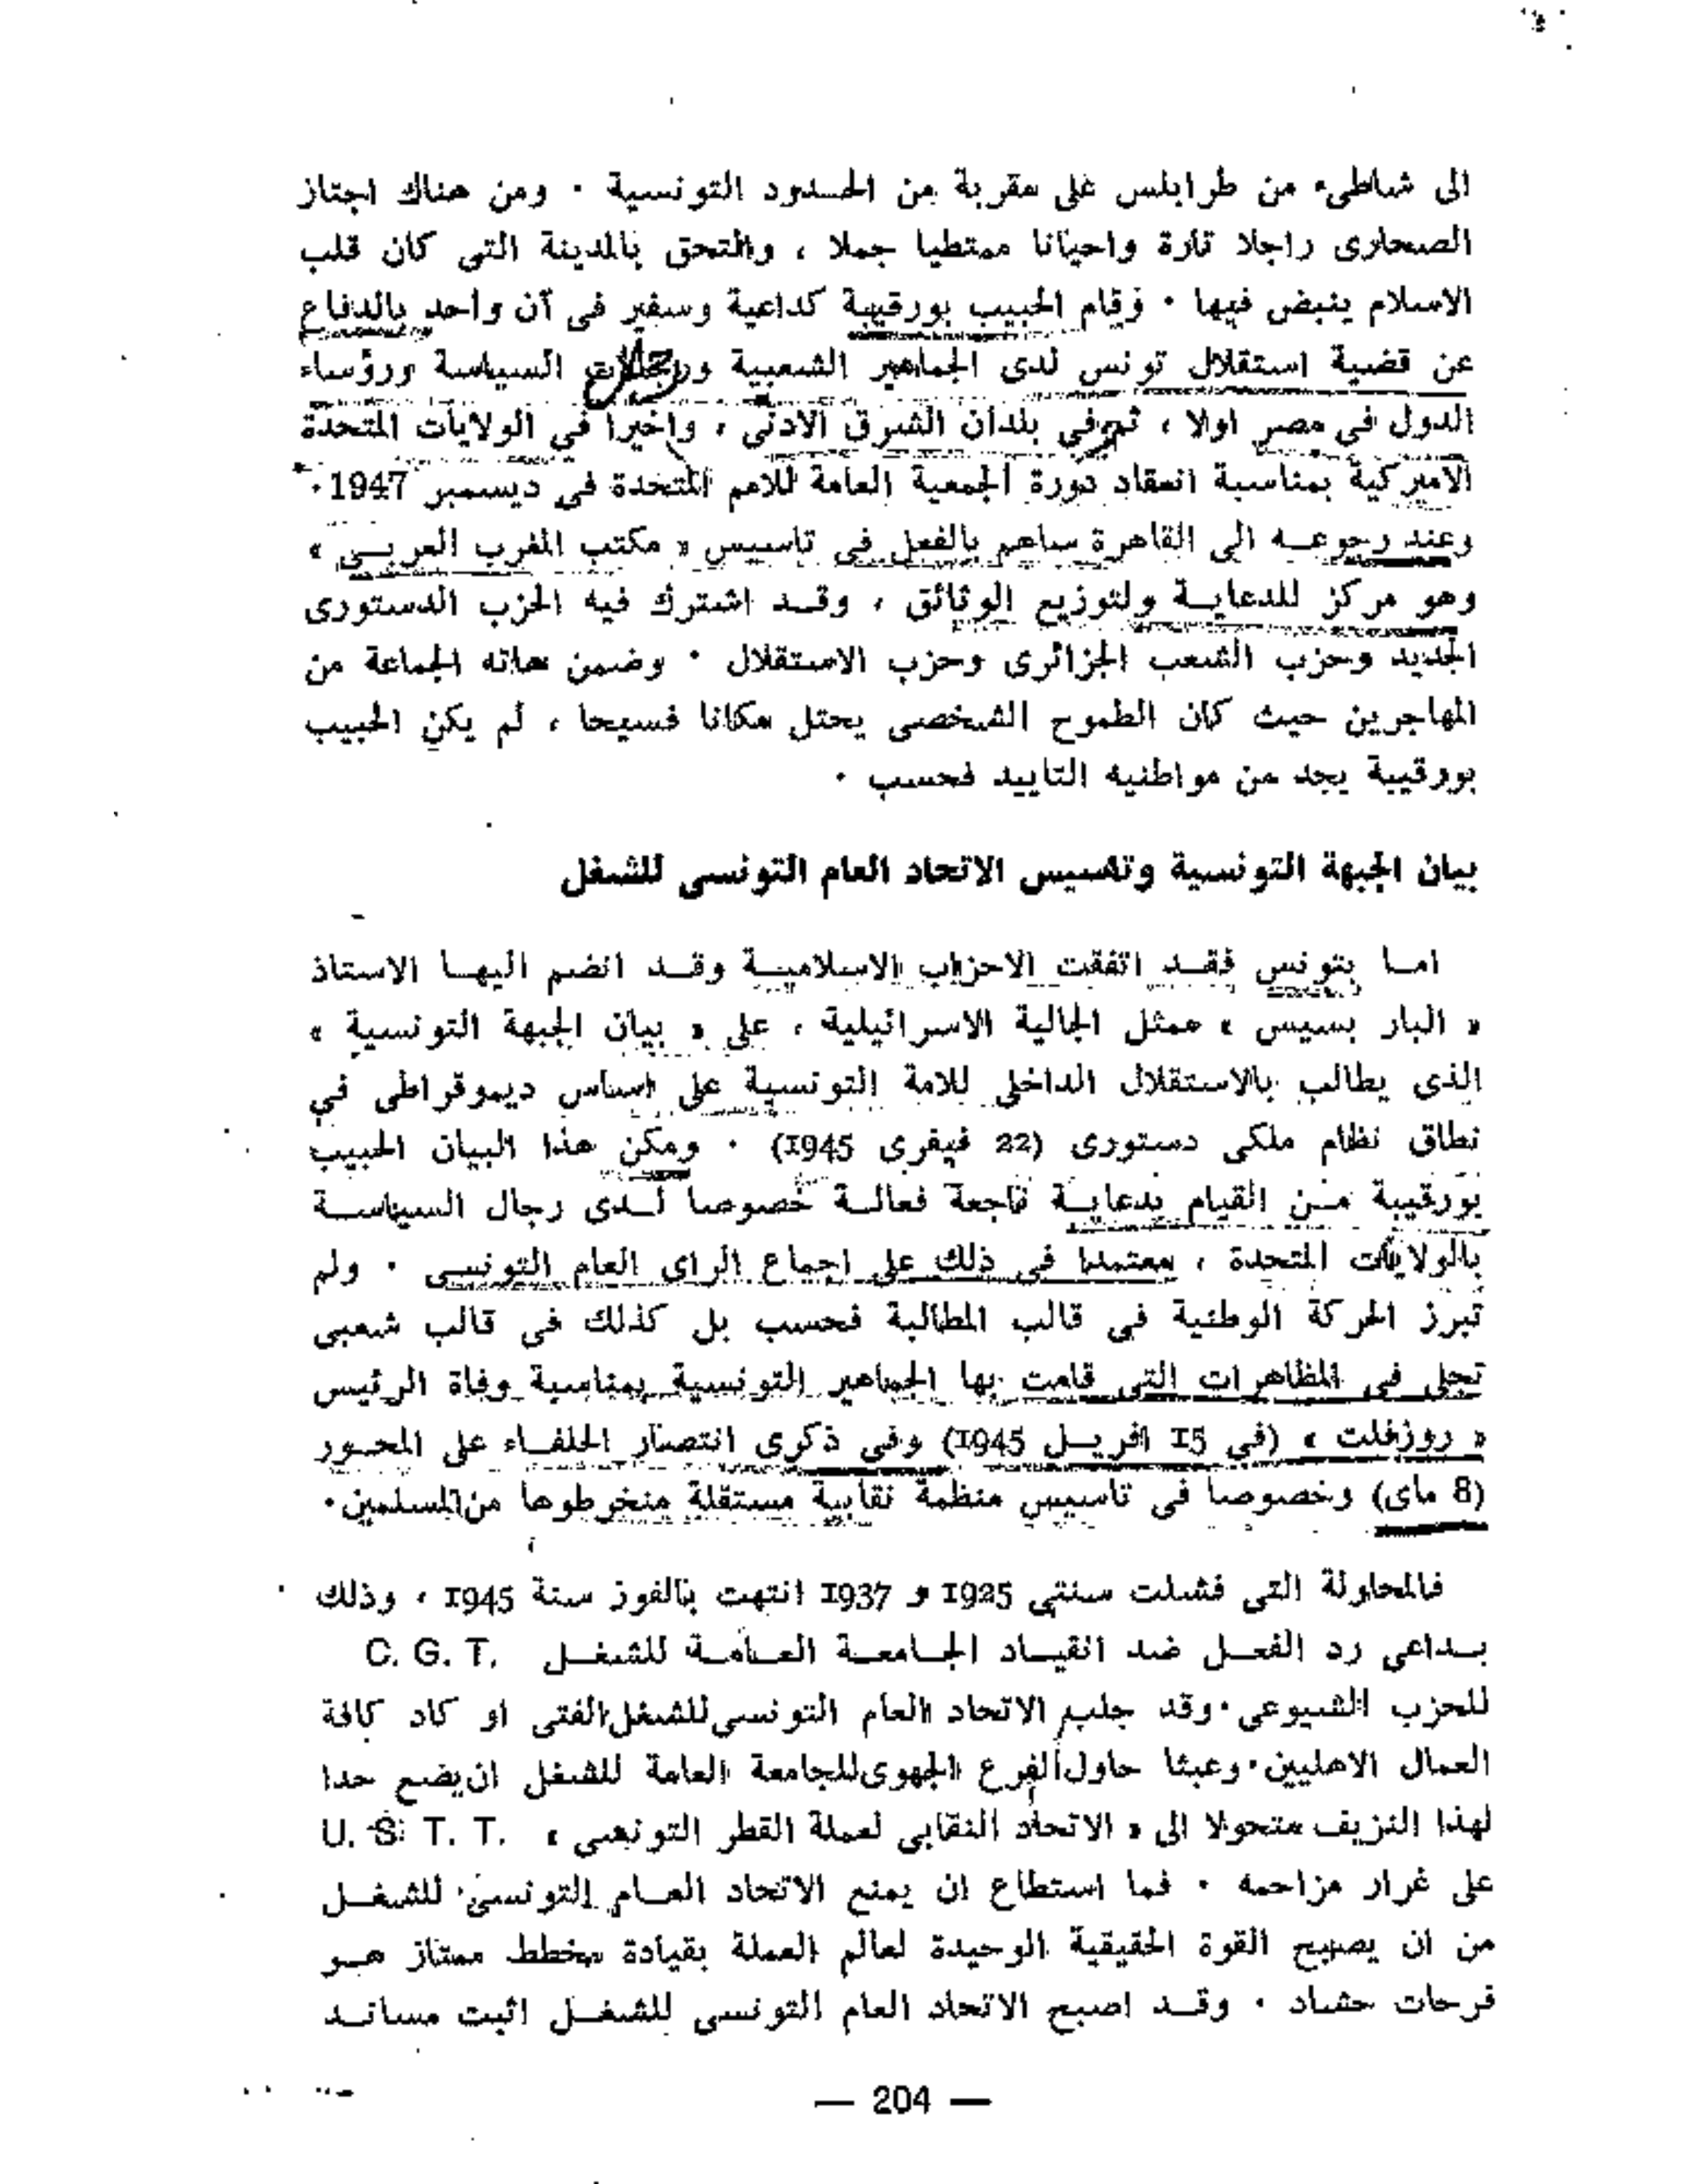 الى شاطىء من طرابلس على مقربة من الحـدود التونسية · ومن هناك اجتاز
الصحارى راجلا تارة واحيانا ممتطيا جملا ، والتحق بالمدينة التى كان قلب
الاسلام ينبض فيها · وقام الحبيب بورقيبة كداعية وسفير فى آن واحد بالدفاع
عن قضية استقلال تونس لدى الجماهير الشعبية ورجالات السياسة ورؤساء
الدول فى مصر اولا ، ثم فى بلدان الشرق الادنى ، واخيرا فى الولايات المتحدة
الاميركية بمناسبة انعقاد دورة الجمعية العامة للامم المتحدة فى ديسمبر 1947 ·
وعند رجوعـه الى القاهرة ساهم بالفعل فى تاسيس « مكتب المغرب العربـى »
وهو مركز للدعايـة ولتوزيع الوثائق ، وقـد اشترك فيه الحزب الدستورى
الجديد وحزب الشعب الجزائرى وحزب الاستقلال · وضمن هاته الجماعة من
المهاجرين حيث كان الطموح الشخصى يحتل مكانا فسيحا ، لم يكن الحبيب
بورقيبة يجد من مواطنيه التاييد فحسب ·
بيان الجبهة التونسية وتاسيس الاتحاد العام التونسى للشغل
امـا بتونس فقـد اتفقت الاحزاب الاسلاميـة وقـد انضم اليهـا الاستاذ
« البار بسيس » ممثل الجالية الاسرائيلية ، على « بيان الجبهة التونسية »
الذى يطالب بالاستقلال الداخلى للامة التونسية على اساس ديموقراطى في
نطاق نظام ملكى دستورى (22 فيفرى 1945) · ومكن هذا البيان الحبيب
بورقيبة مـن القيام بدعايـة ناجعة فعالـة خصوصا لـدى رجال السياسـة
بالولايات المتحدة ، معتمدا فى ذلك على اجماع الراى العام التونسى · ولم
تبرز الحركة الوطنية فى قالب المطالبة فحسب بل كذلك فى قالب شعبى
تجلى فى المظاهرات التى قامت بها الجماهير التونسية بمناسبة وفاة الرئيس
« روزفلت » (فى 15 افريـل 1945) وفى ذكرى انتصار الحلفـاء على المحـور
(8 ماى) وخصوصا فى تاسيس منظمة نقابية مستقلة منخرطوها من المسلمين ·
فالمحاولة التى فشلت سنتى 1925 و 1937 انتهت بالفوز سنة 1945 ، وذلك
بـداعى رد الفعـل ضد انقيـاد الجـامعـة العـامـة للشغـل C. G. T.
للحزب الشيوعى · وقد جلب الاتحاد العام التونسى للشغل الفتى او كاد كافة
العمال الاهليين · وعبثا حاول الفرع الجهوى للجامعة العامة للشغل ان يضع حدا
لهذا النزيف متحولا الى « الاتحاد النقابى لعملة القطر التونسى » U. S. T. T.
على غرار مزاحمه · فما استطاع ان يمنع الاتحاد العـام التونسى للشغـل
من ان يصبح القوة الحقيقية الوحيدة لعالم العملة بقيادة مخطط ممتاز هـو
فرحات حشاد · وقـد اصبح الاتحاد العام التونسى للشغـل اثبت مسانـد
— 204 —